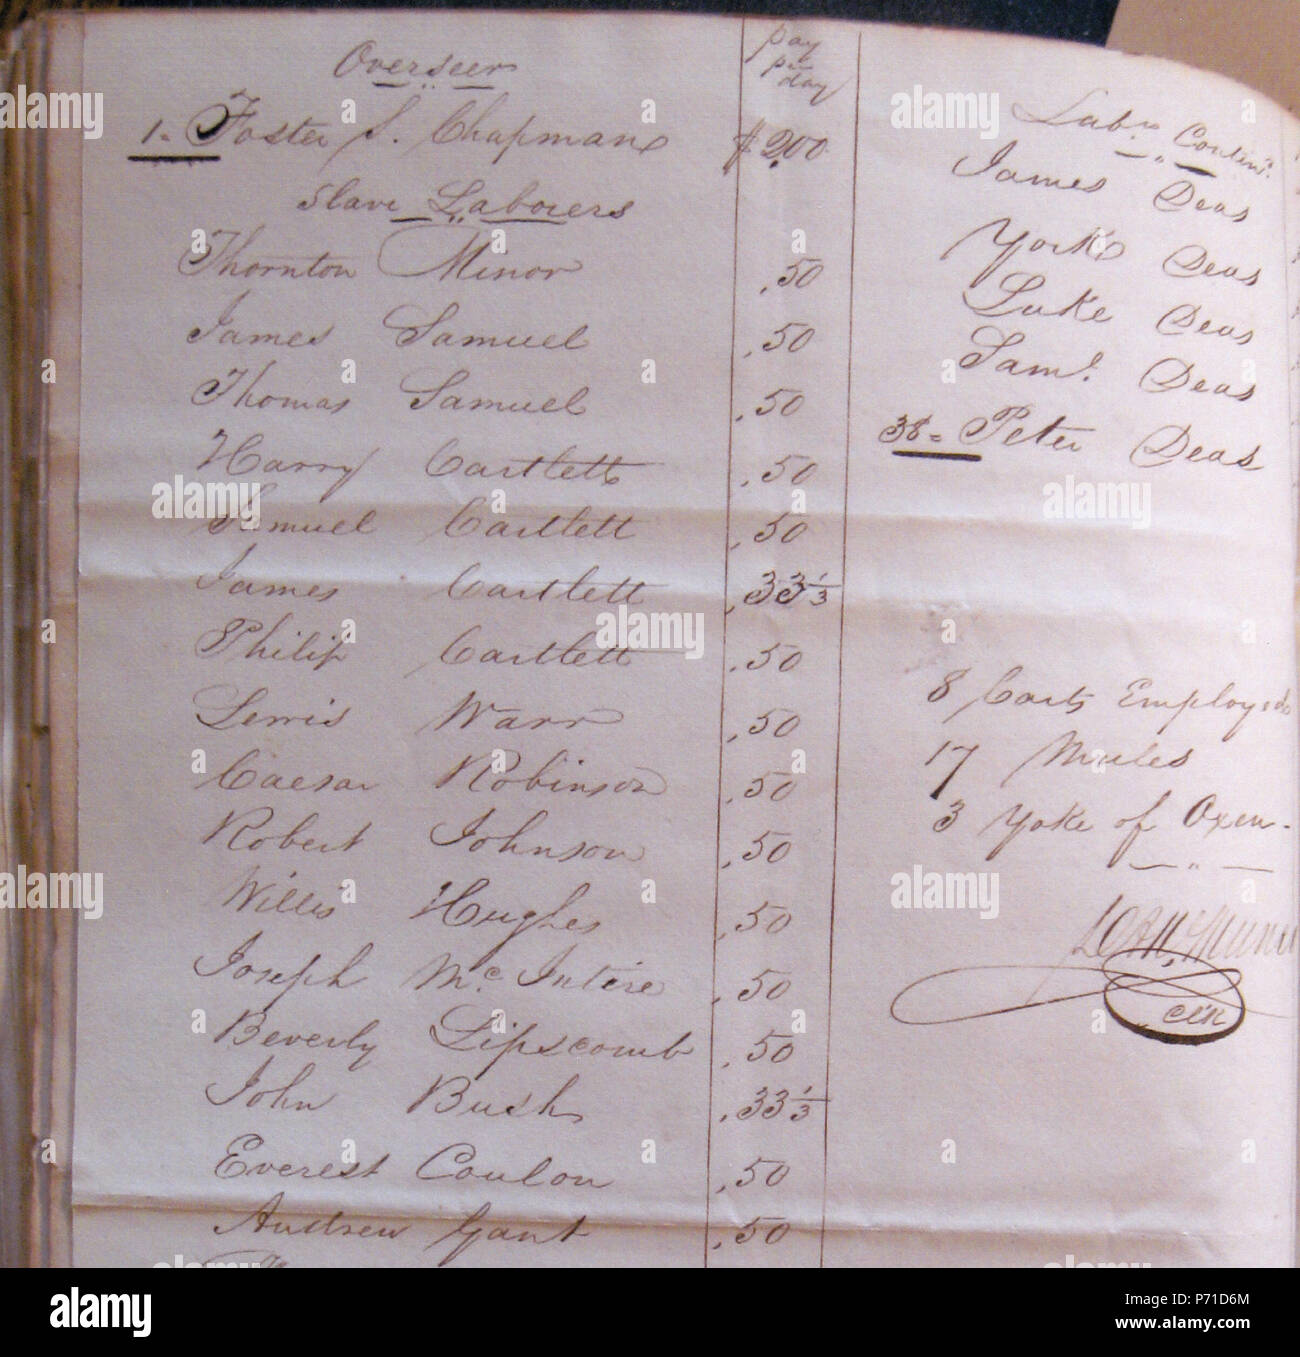 Overseer
pay
per
day
1. Foster S. Chapman $2.00
Slave Laborers
Thornton Minor .50
James Samuel .50
Thomas Samuel .50
Harry Cartlett .50
Samuel Cartlett .50
James Cartlett .33 1/3
Philip Cartlett .50
Lewis Warr .50
Caesar Robinson .50
Robert Johnson .50
Willis Hughes .50
Joseph Mc Intire .50
Beverly Lipscomb .50
John Bush .33 1/3
Everest Coulon .50
Andrew Gant .50
Labrs Contind.
James Deas
York Deas
Luke Deas
Saml. Deas
38 = Peter Deas
8 Carts Employed
17 Mules
3 Yoke of Oxen.
clk
alamy
Image ID: P71D6M
www.alamy.com